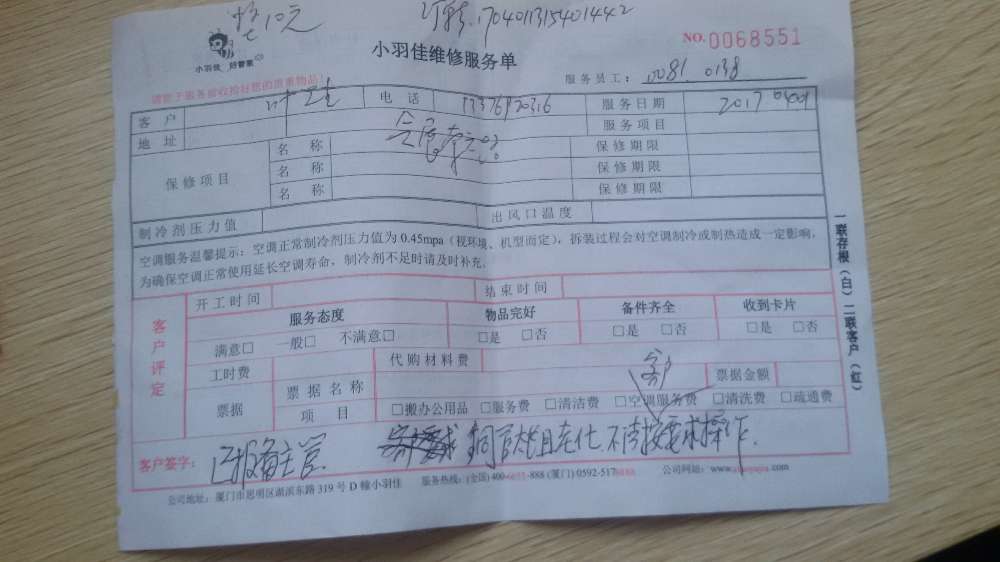 10元
170401131540144２
NO.0068551
小羽佳 好管家
小羽佳维修服务单
服务员工： 0081 0138
请您于服务前收捡好您的贵重物品！
客户 电话 服务日期 2017 0401
地址 服务项目
保修项目 名称 保修期限
名称 保修期限
名称 保修期限
制冷剂压力值 出风口温度
空调服务温馨提示：空调正常制冷剂压力值为0.45mpa（视环境、机型而定），拆装过程会对空调制冷或制热造成一定影响，
为确保空调正常使用延长空调寿命，制冷剂不足时请及时补充。
一联存根（白）二联客户（红）
客户评定
开工时间 结束时间
服务态度 物品完好 备件齐全 收到卡片
满意□ 一般□ 不满意□ □是 □否 □是 □否 □是 □否
工时费 代购材料费 客户
票据 票据名称 票据金额
项目 □搬办公用品 □服务费 □清洁费 □空调服务费 □清洗费 □疏通费
客户签字： 已报备主管 铜管太短且老化,不待按要求操作.
公司地址：厦门市思明区湖滨东路319号D幢小羽佳 服务热线：(全国)400-6655-888 (厦门) 0592-5178888 公司网站：www.xiaoyujia.com